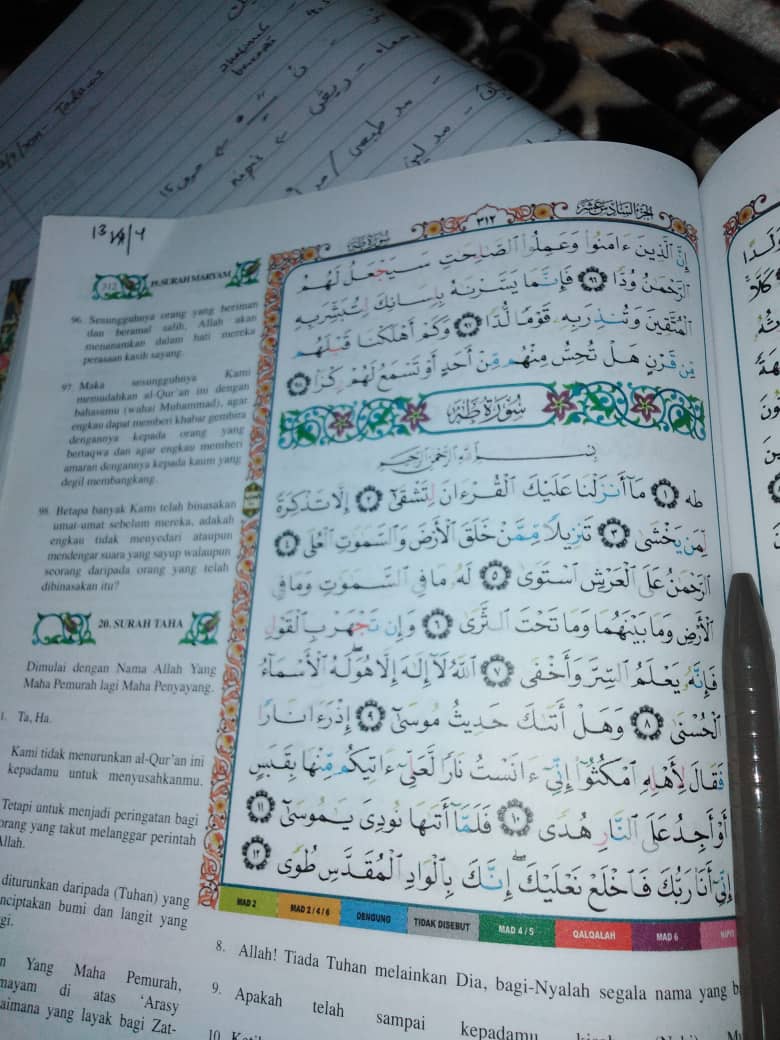 13
٣١٢
الجزء السادس عشر
سورة طه
إِنَّ الَّذِينَ ءَامَنُوا وَعَمِلُوا الصَّالِحَتِ سَيَجْعَلُ لَهُمُ
الرَّحْمَنُ وُدًّا ٩٦ فَإِنَّمَا يَسَّرْنَهُ بِلِسَانِكَ لِتُبَشِّرَ بِهِ
الْمُتَّقِينَ وَتُنذِرَ بِهِ قَوْمًا لُّدًّا ٩٧ وَكَمْ أَهْلَكْنَا قَبْلَهُم
مِّن قَرْنٍ هَلْ تُحِسُّ مِنْهُم مِّنْ أَحَدٍ أَوْ تَسْمَعُ لَهُمْ رِكْزًا ٩٨
سُورَةُ طه
بِسْمِ اللَّهِ الرَّحْمَنِ الرَّحِيمِ
طه ١ مَا أَنزَلْنَا عَلَيْكَ الْقُرْءَانَ لِتَشْقَى ٢ إِلَّا تَذْكِرَةً
لِّمَن يَخْشَى ٣ تَنزِيلًا مِّمَّنْ خَلَقَ الْأَرْضَ وَالسَّمَوَتِ الْعُلَى ٤
الرَّحْمَنُ عَلَى الْعَرْشِ اسْتَوَى ٥ لَهُ مَا فِي السَّمَوَتِ وَمَا فِي
الْأَرْضِ وَمَا بَيْنَهُمَا وَمَا تَحْتَ الثَّرَى ٦ وَإِن تَجْهَرْ بِالْقَوْلِ
فَإِنَّهُ يَعْلَمُ السِّرَّ وَأَخْفَى ٧ اللَّهُ لَا إِلَهَ إِلَّا هُوَ لَهُ الْأَسْمَاءُ
الْحُسْنَى ٨ وَهَلْ أَتَىكَ حَدِيثُ مُوسَى ٩ إِذْ رَءَا نَارًا
فَقَالَ لِأَهْلِهِ امْكُثُوا إِنِّي ءَانَسْتُ نَارًا لَّعَلِّي ءَاتِيكُم مِّنْهَا بِقَبَسٍ
أَوْ أَجِدُ عَلَى النَّارِ هُدًى ١٠ فَلَمَّا أَتَىهَا نُودِيَ يَمُوسَى ١١
إِنِّي أَنَا رَبُّكَ فَاخْلَعْ نَعْلَيْكَ إِنَّكَ بِالْوَادِ الْمُقَدَّسِ طُوًى ١٢
MAD 2
MAD 2/4/6
DENGUNG
TIDAK DISEBUT
MAD 4/5
QALQALAH
MAD 6
312
19. SURAH MARYAM
96. Sesungguhnya orang yang beriman
dan beramal salih, Allah akan
menanamkan dalam hati mereka
perasaan kasih sayang.
97. Maka sesungguhnya Kami
memudahkan al-Qur'an ini dengan
bahasamu (wahai Muhammad), agar
engkau dapat memberi khabar gembira
dengannya kepada orang yang
bertaqwa dan agar engkau memberi
amaran dengannya kepada kaum yang
degil membangkang.
98. Betapa banyak Kami telah binasakan
umat-umat sebelum mereka, adakah
engkau tidak menyedari ataupun
mendengar suara yang sayup walaupun
seorang daripada orang yang telah
dibinasakan itu?
20. SURAH TAHA
Dimulai dengan Nama Allah Yang
Maha Pemurah lagi Maha Penyayang.
1. Ta, Ha.
Kami tidak menurunkan al-Qur'an ini
kepadamu untuk menyusahkanmu.
Tetapi untuk menjadi peringatan bagi
orang yang takut melanggar perintah
Allah.
diturunkan daripada (Tuhan) yang
menciptakan bumi dan langit yang
Yang Maha Pemurah,
di atas 'Arasy
yang layak bagi Zat-
8. Allah! Tiada Tuhan melainkan Dia, bagi-Nyalah segala nama yang
9. Apakah telah sampai kepadamu
10.